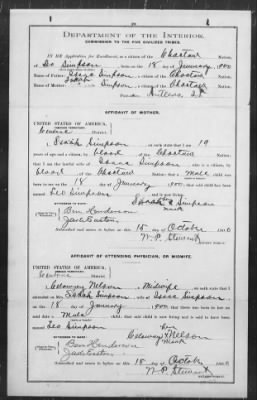 DEPARTMENT OF THE INTERIOR.
COMMISSION TO THE FIVE CIVILIZED TRIBES.
IN RE Application for Enrollment, as a citizen of the Choctaw Nation,
of Leo Simpson, born on the 18 day of January, 1900
Name of Father: Isaac Simpson, a citizen of the Choctaw Nation.
Name of Mother: Isabah Simpson, a citizen of the Choctaw Nation.
Antlers, I.T.
AFFIDAVIT OF MOTHER.
UNITED STATES OF AMERICA,
Central District.
I, Isabah Simpson, on oath state that I am 19
years of age and a citizen, by blood, of the Choctaw Nation;
that I am the lawful wife of Isaac Simpson, who is a citizen, by
blood, of the Choctaw Nation; that a male child was
born to me on the 18 day of January, 1900; that said child has been named
Leo Simpson, and is now living.
Simpson
mark
Ben Henderson
Jack Easton
Subscribed and sworn to before me this 15 day of October 190
W.P. Stewart
AFFIDAVIT OF ATTENDING PHYSICIAN, OR MIDWIFE.
UNITED STATES OF AMERICA,
Central District.
I, Calaway Nelson, a Midwife, on oath state that I
attended on Isabah Simpson, wife of Isaac Simpson
on the 18 day of January
male child; that said child is now living and is said to have been
named Leo Simpson
her
Calaway x Nelson
mark
Ben Henderson
Jack Easton
Subscribed and sworn to before me this 15 day of October 190
W.P. Stewart